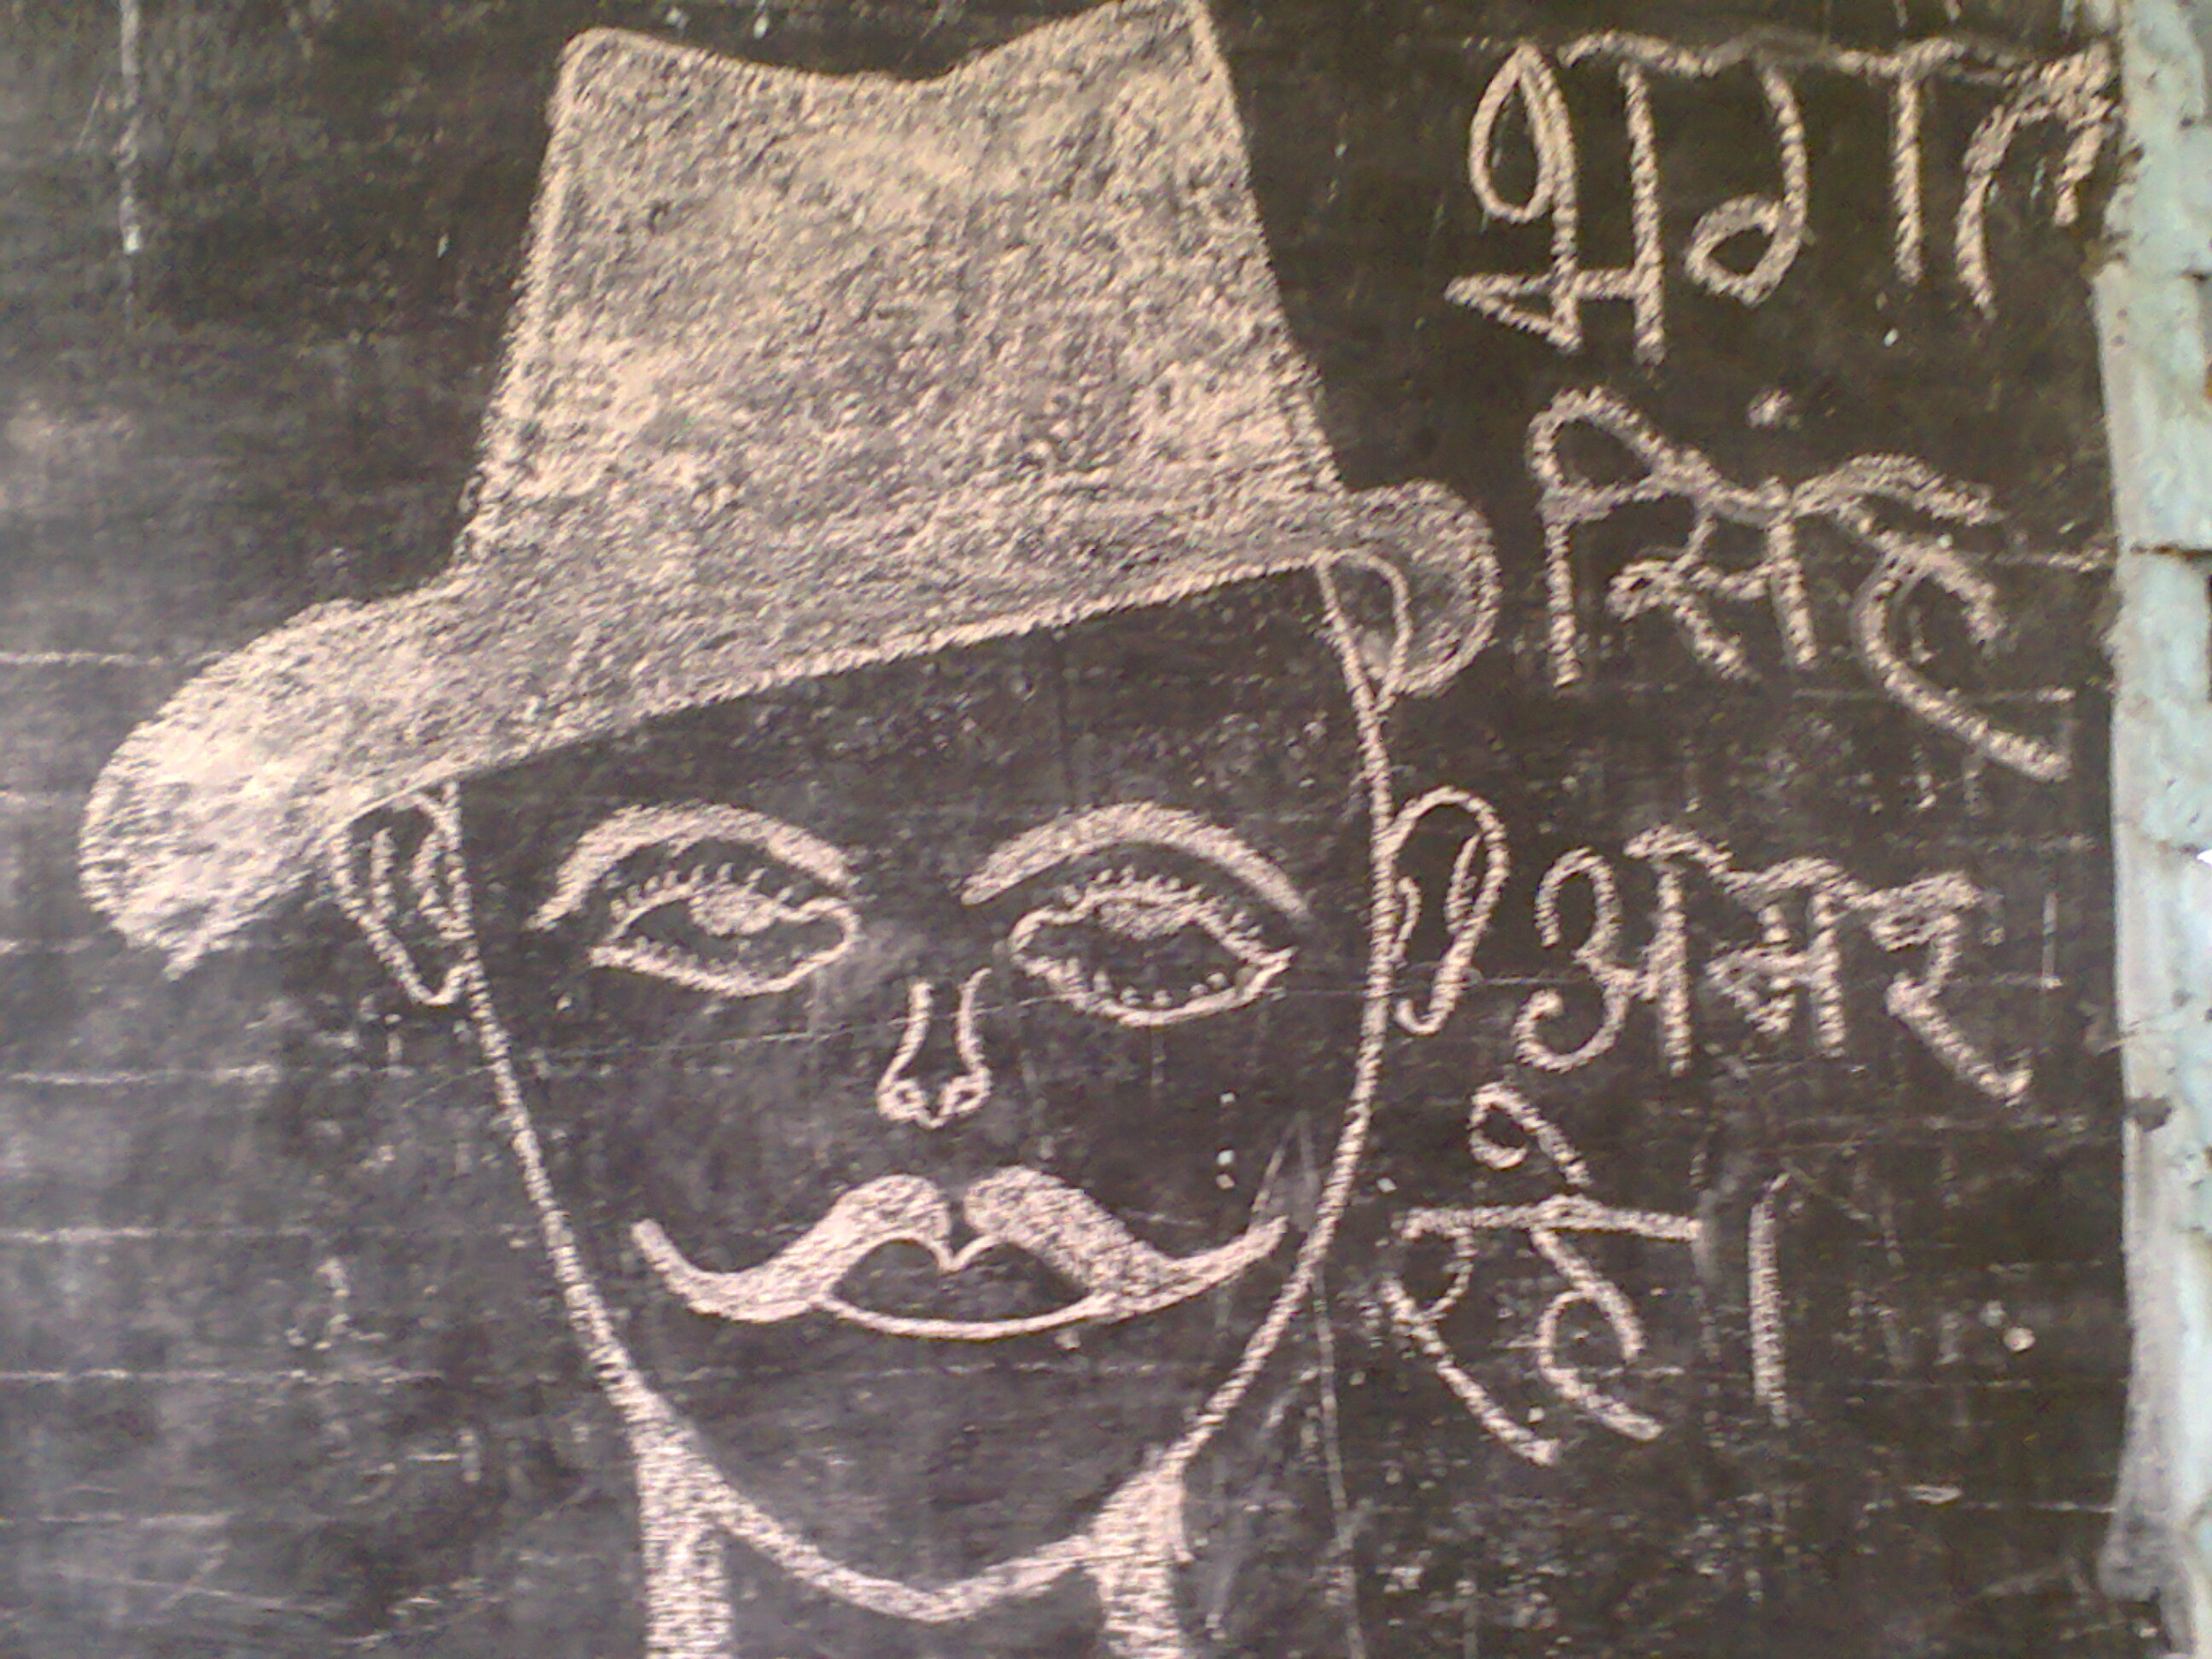 भगत
सिंह
अमर
रहे।